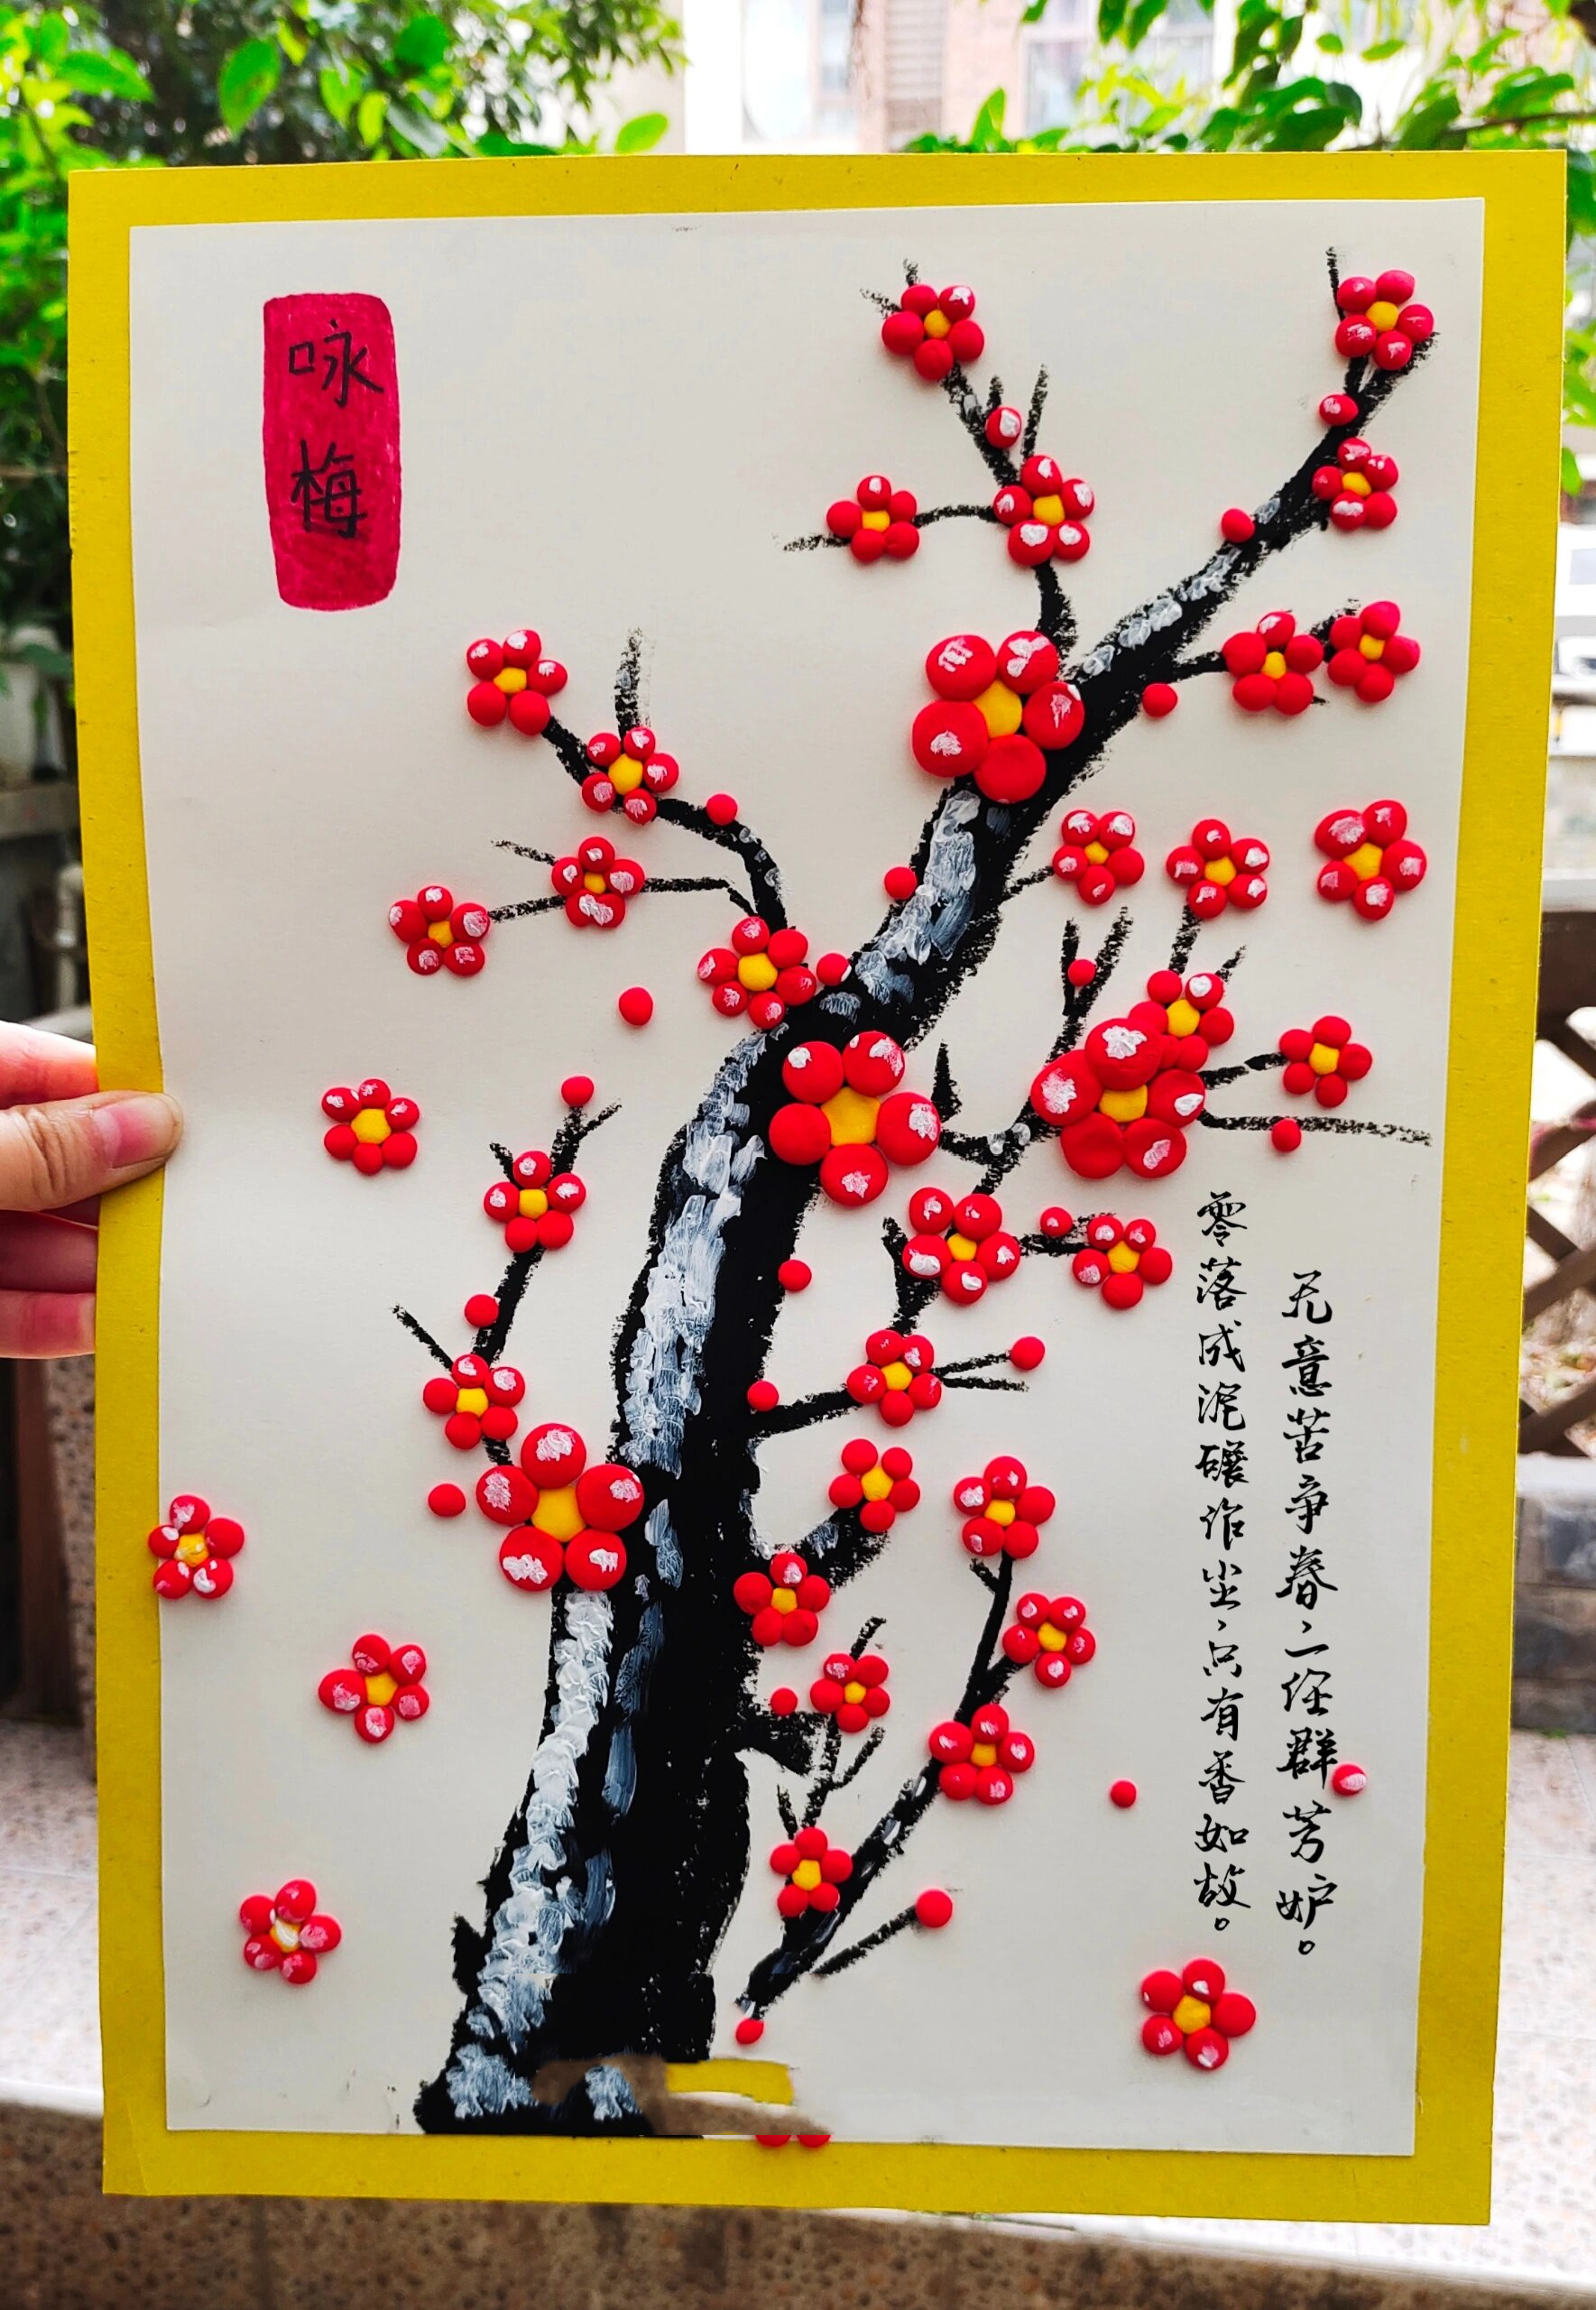 咏梅
无意苦争春、一任群芳妒。
零落成泥碾作尘、只有香如故。